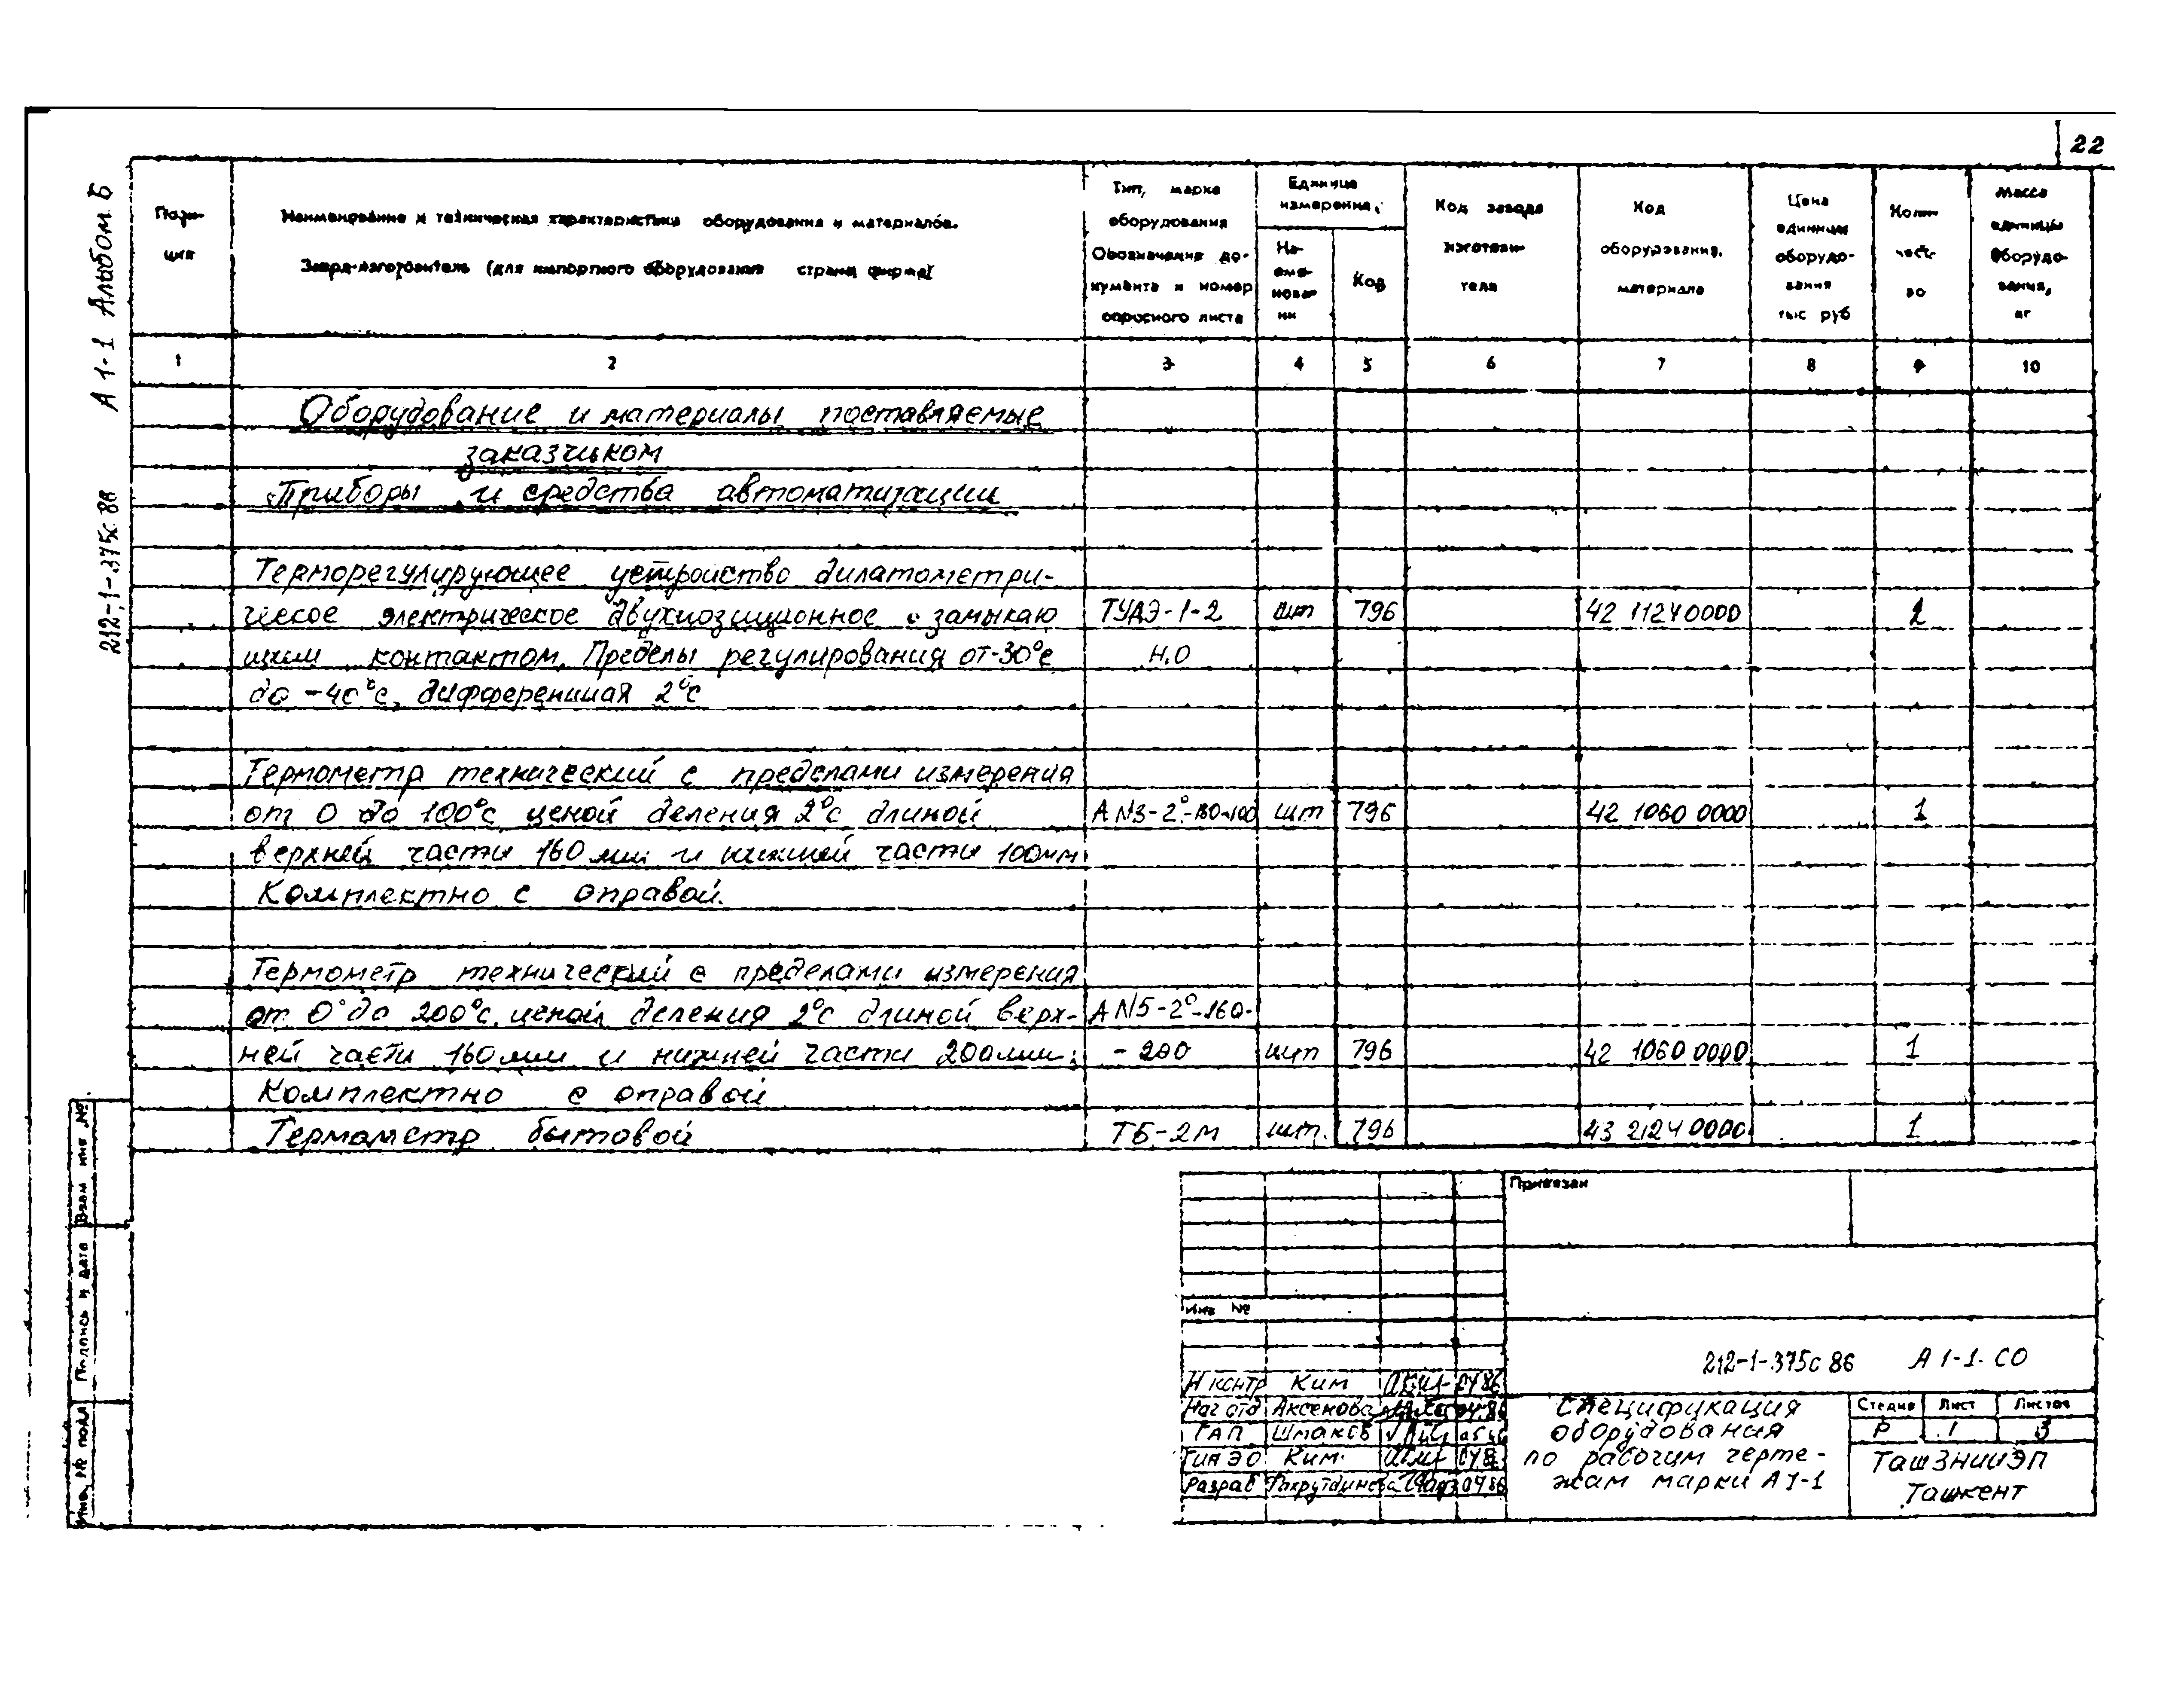 22
А 1-1 Альбом Б
212-1-375с.86
Пози-
ция
Наименование и техническая характеристика оборудования и материалов.
Завод-изготовитель (для импортного оборудования страна, фирма)
Тип, марка
оборудования
Обозначение до-
кумента и номер
опросного листа
Единица
измерения,
На-
име-
нова-
ни
Код
Код завода
изготови-
теля
Код
оборудования,
материала
Цена
единицы
оборудо-
вания
тыс руб
Коли-
чест-
во
Масса
единицы
оборудо-
вания,
кг
1 2 3 4 5 6 7 8 9 10
Оборудование и материалы поставляемые
заказчиком
Приборы и средства автоматизации
Терморегулирующее устройство дилатометри-
ческое электрическое двухпозиционное с замыкаю ТУДЭ-1-2 шт 796 42 1124 0000
щим контактом. Пределы регулирования от-30°с Н.О
до -40°с, дифференциал 2°с
Термометр технический с пределами измерения
от 0 до 100°с ценой деления 2°с длиной А N3-2°-160-100 шт 796 42 1060 0000 1
верхней части 160 мм и нижней части 100мм
Комплектно с оправой.
Термометр технический с пределами измерения
от 0° до 200°с. ценой деления 2°с длиной верх- А N5-2°-160-
ней части 160мм и нижней части 200мм. -200 шт 796 42 1060 0000 1
Комплектно с оправой
Термометр бытовой ТБ-2М шт. 796 43 2124 0000 1
Привязан
Инв №
212-1-375с 86 А 1-1. СО
Н контр Ким 04 86
Нач отд Аксенова 04.86
ГАП Шмаков
ГИП ЭО Ким.
Разраб Фахрутдинова 04 86
Спецификация
оборудования
по рабочим черте-
жам марки А 1-1
Стадия Лист Листов
Р 1 3
ТашЗНИИЭП
Ташкент
Взам инв №
Подпись и дата
Инв. № подл